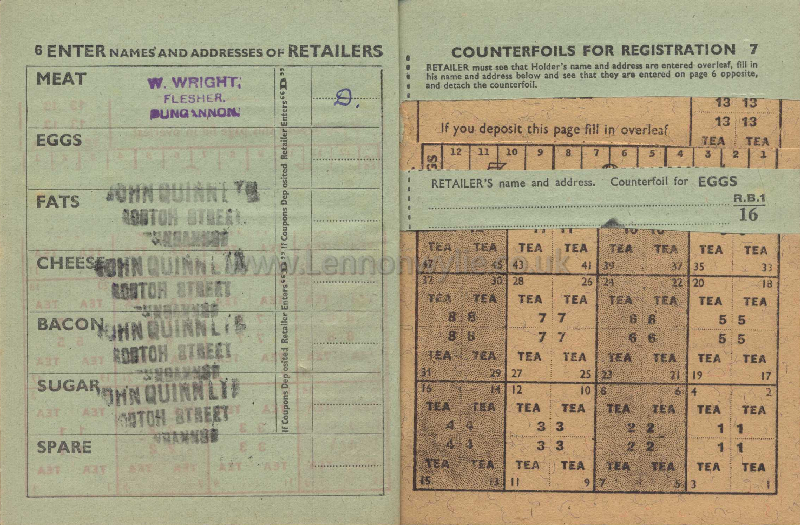 6 ENTER NAMES AND ADDRESSES OF RETAILERS
MEAT
W. WRIGHT,
FLESHER.
DUNGANNON.
D.
EGGS
FATS
JOHN QUINN LTD
SCOTCH STREET,
DUNGANNON
CHEESE
JOHN QUINN LTD
SCOTCH STREET
DUNGANNON
BACON
JOHN QUINN LTD
SCOTCH STREET
DUNGANNON
SUGAR
JOHN QUINN LTD
SCOTCH STREET
DUNGANNON
SPARE
If Coupons Deposited Retailer Enters "D" If Coupons Deposited Retailer Enters "D"
www.LennonWylie.co.uk
COUNTERFOILS FOR REGISTRATION 7
RETAILER must see that Holder's name and address are entered overleaf, fill in
his name and address below and see that they are entered on page 6 opposite,
and detach the counterfoil.
13 13
13 13
TEA TEA
If you deposit this page fill in overleaf
12 11 10 9 8 7 6 5 4 3 2 1
RETAILER'S name and address. Counterfoil for EGGS
R.B.1
16
TEA TEA TEA TEA TEA TEA TEA TEA
47 45 43 41 39 37 35 33
32 30 28 26 24 22 20 18
TEA TEA TEA TEA TEA TEA TEA TEA
8 8 7 7 6 6 5 5
8 8 7 7 6 6 5 5
TEA TEA TEA TEA TEA TEA TEA TEA
31 29 27 25 23 21 19 17
16 14 12 10 8 6 4 2
TEA TEA TEA TEA TEA TEA TEA TEA
4 4 3 3 2 2 1 1
4 4 3 3 2 2 1 1
TEA TEA TEA TEA TEA TEA TEA TEA
15 13 11 9 7 5 3 1